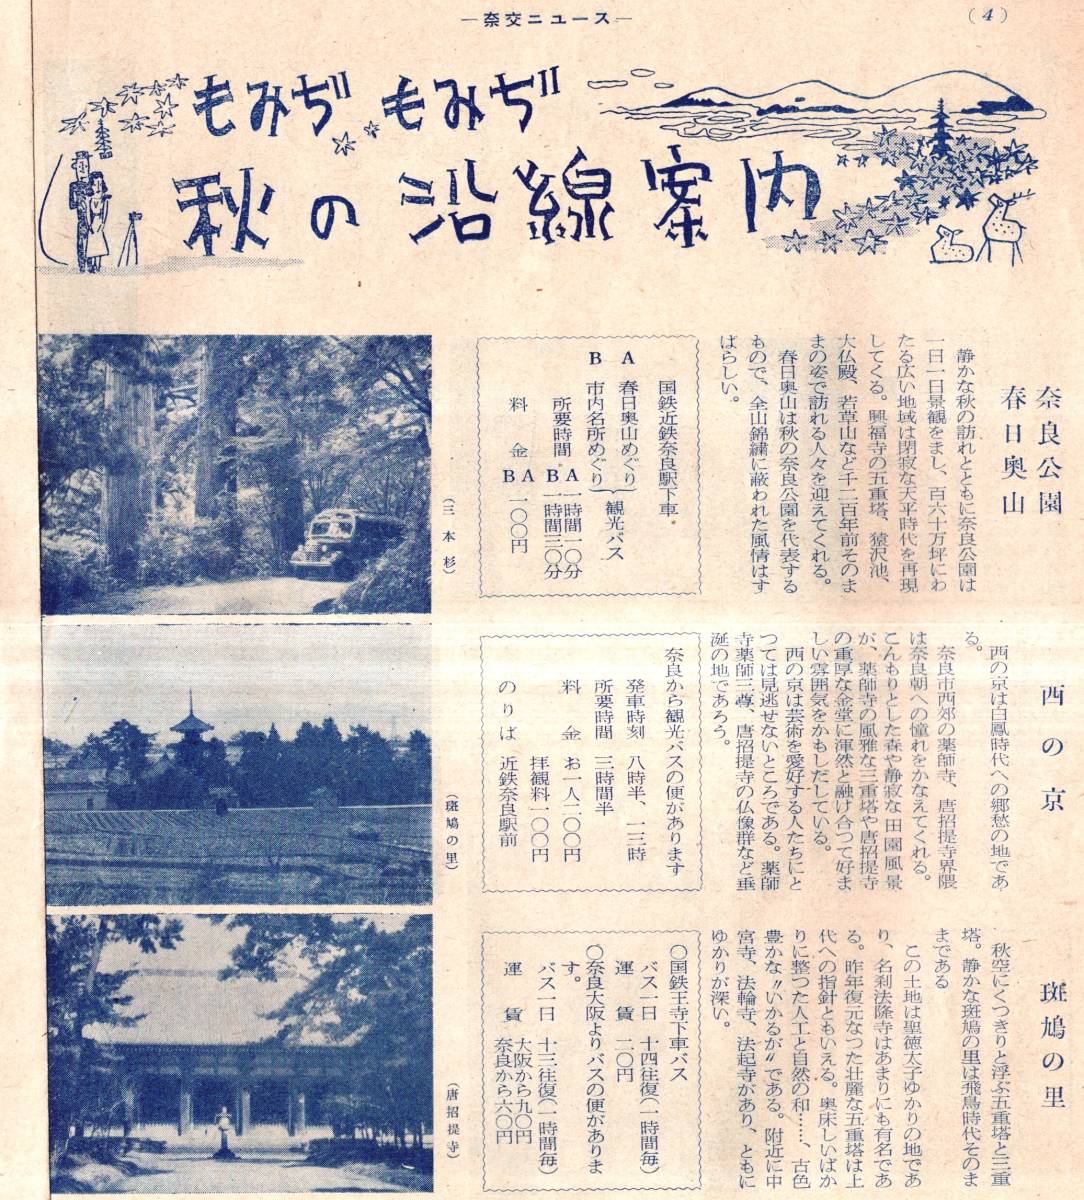 —奈交ニュース—
(4)
もみぢ もみぢ
秋の沿線案内
奈良公園
春日奥山
静かな秋の訪れとともに奈良公園は
一日一日景観をまし、百六十万坪にわ
たる広い地域は閑寂な天平時代を再現
してくる。興福寺の五重塔、猿沢池、
大仏殿、若草山など千二百年前そのま
まの姿で訪れる人々を迎えてくれる。
春日奥山は秋の奈良公園を代表する
もので、全山錦繍に蔽われた風情はす
ばらしい。
国鉄近鉄奈良駅下車
A 春日奥山めぐり
B 市内名所めぐり
観光バス
所要時間 A一時間一〇分
B一時間三〇分
料金 A
B 一〇〇円
(三本杉)
西の京
西の京は白鳳時代への郷愁の地であ
る。
奈良市西郊の薬師寺、唐招提寺界隈
は奈良朝への憧れをかなえてくれる。
こんもりとした森や静寂な田園風景
が、薬師寺の風雅な三重塔や唐招提寺
の重厚な金堂に渾然と融け合つて好ま
しい雰囲気をかもしだしている。
西の京は芸術を愛好する人たちにと
つては見逃せないところである。薬師
寺薬師三尊、唐招提寺の仏像群など垂
涎の地であろう。
奈良から観光バスの便があります
発車時刻 八時半、一三時
所要時間 三時間半
料金 お一人二〇〇円
拝観料一〇〇円
のりば 近鉄奈良駅前
(斑鳩の里)
斑鳩の里
秋空にくつきりと浮ぶ五重塔と三重
塔。静かな斑鳩の里は飛鳥時代そのま
まである
この土地は聖徳太子ゆかりの地であ
り、名刹法隆寺はあまりにも有名であ
る。昨年復元なつた壮麗な五重塔は上
代への指針ともいえる。奥床しいばか
りに整つた人工と自然の和……、古色
豊かな〃いかるが〃である。附近に中
宮寺、法輪寺、法起寺があり、ともに
ゆかりが深い。
〇国鉄王寺下車バス
バス一日 十四往復(一時間毎)
運賃 二〇円
〇奈良大阪よりバスの便がありま
す。
バス一日 十三往復(一時間毎)
運賃 大阪から九〇円
奈良から六〇円
(唐招提寺)